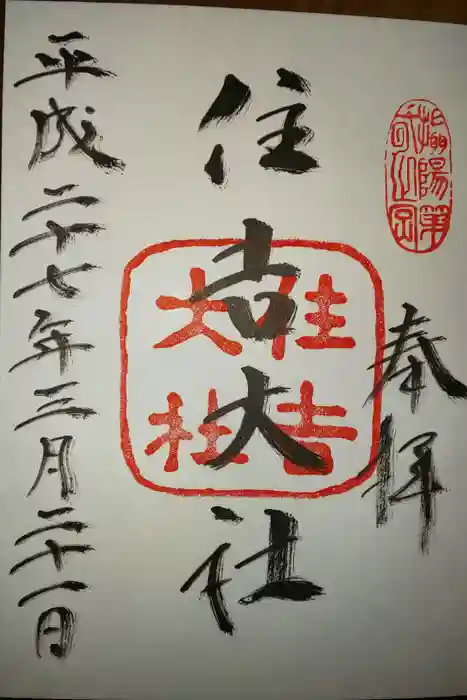 奉拝
住吉大社
住吉
大社
平成二十七年三月二十一日